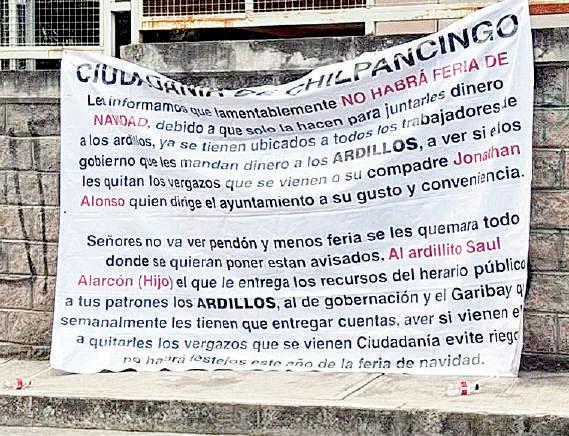 CIUDADANIA DE CHILPANCINGO
Les informamos que lamentablemente NO HABRÁ FERIA DE
NAVIDAD, debido a que solo la hacen para juntarles dinero
a los ardillos, ya se tienen ubicados a todos los trabajadores de
gobierno que les mandan dinero a los ARDILLOS, a ver si ellos
les quitan los vergazos que se vienen o su compadre Jonathan
Alonso quien dirige el ayuntamiento a su gusto y conveniencia.
Señores no va ver pendón y menos feria se les quemara todo
donde se quieran poner estan avisados. Al ardillito Saul
Alarcón (Hijo) el que le entrega los recursos del herario público
a tus patrones los ARDILLOS, al de gobernación y el Garibay q
semanalmente les tienen que entregar cuentas, aver si vienen el
a quitarles los vergazos que se vienen Ciudadanía evite riego
no habrá festejos este año de la feria de navidad.